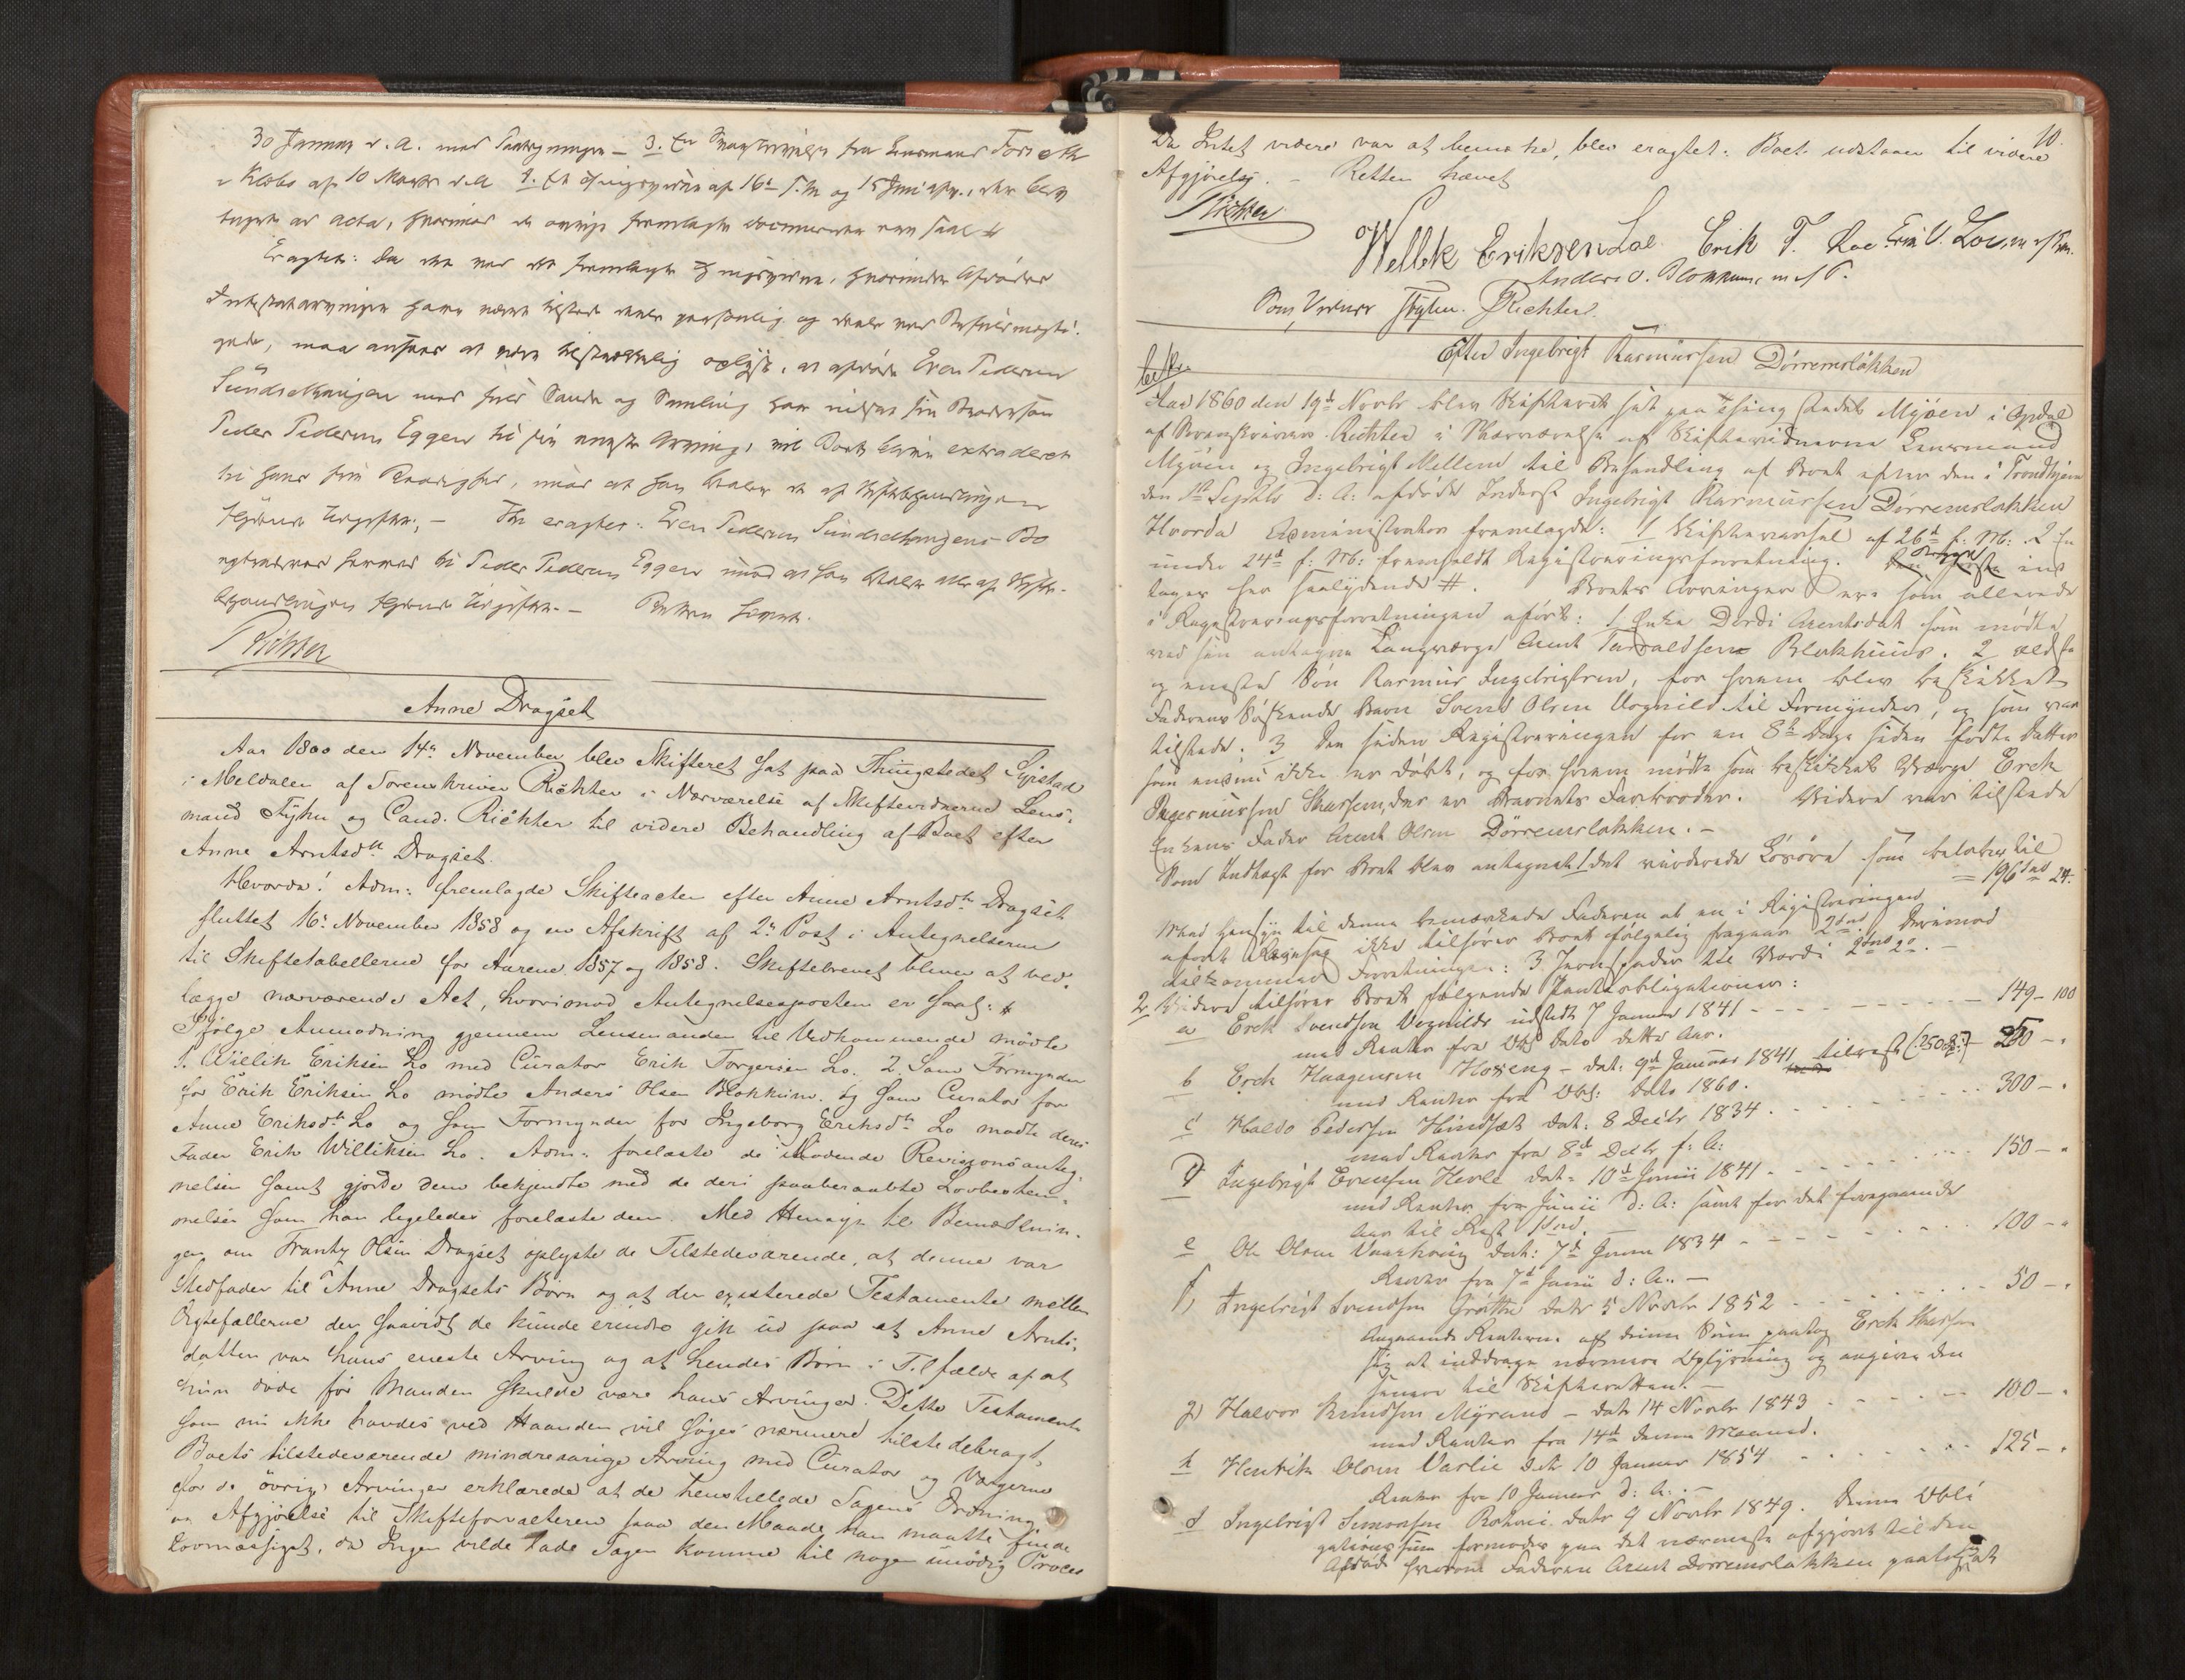 30 Januar d. A. med Paategninger – 3. En fra Lensmand Forseth
i Klæbo af 10 Marts d. A. 4. af 16de og 15 Juni, der blev
ad acta, hvorimod de øvrige fremlagte Documenter
Eragtet: Da det ved det fremlagte, hvorunder Afdødes
Intestatarvinger have været tilstede deels personlig og deels ved Befuldmægti-
gede, maa ansees at være tilstrækkelig oplyst, at afdøde Even Pedersen
Sundsethaugen med fuld Sands og Samling har indsat sin Brodersøn
Peder Pedersen Eggen til sin eneste Arving, vil Boet blive extraderet
til hans frie Raadighed, imod at han betaler de af Skiftebehandlingen
flydende Udgifter. – Thi eragtes: Even Pedersen Sundsethaugens Bo
hermed til Peder Pedersen Eggen imod at han betaler alle af Skifte-
behandlingen flydende Udgifter. – Retten hævet.
Richter
Anne Dragset
Aar 1860 den 14de November blev Skifteret sat paa Thingstedet Syrstad
i Meldalen af Sorenskriver Richter i Nærværelse af Skiftevidnerne Lens-
mand Fyhn og Cand. Richter til videre Behandling af Boet efter
Anne Arntsdtr Dragset.
Hvorda! Adm: fremlagde Skifteacten efter Anne Arntsdtr Dragset
sluttet 16de November 1858 og en Afskrift af 2den Post i Antegnelserne
til Skiftetabellerne for Aarene 1857 og 1858. Skiftebrevet bliver at ved-
lægge nærværende Act, hvorimod Antegnelsesposten er saal: #
Ifølge Anmodning gjennem Lensmanden til Vedkommende mødte
1. Willik Eriksen Lo med Curator Erik Torgersen Lo. 2. Som Formynder
for Erik Eriksen Lo mødte Anders Olsen Blokkum. Og som Curator for
Anne Eriksdtr Lo og som Formynder for Ingeborg Eriksdtr Lo mødte deres
Fader Erik Williksen Lo. Adm: forelæste de Mødende Revisionsanteg-
nelsen samt gjorde dem bekjendte med de deri paaberaabte Lovbestem-
melser som han ligeledes forelæste dem. Med Hensyn til Bemærknin-
gen om Frantz Olsen Dragset oplyste de Tilstedeværende, at denne var
Stedfader til Anne Dragsets Børn og at der existerede Testamente mellem
Ægtefællerne der saavidt de kunde erindre gik ud paa at Anne Arnts-
datter var hans eneste Arving og at hendes Børn i Tilfælde af at
hun døde før Manden skulde være hans Arvinger. Dette Testamente
som nu ikke havdes ved Haanden vil søges nærmere tilstedebragt.
Boets tilstedeværende mindreaarige Arving med Curator og Værgerne
for de øvrige Arvinger erklærede at de henstillede Sagens Ordning
og Afgjørelse til Skifteforvalteren paa den Maade han maatte finde
Lovmæssigst, da Ingen vilde lade Sagen komme til nogen unødig Proces
10.
Da Intet videre var at bemærke, blev eragtet: Boet udstaaer til videre
Afgjørelse. – Retten hævet
Richter
Wellek Eriksen Loe Erik T. Loe Erik V. Loe, m. f. Pen.
Anders O. Blokkum, m. f. P.
Som Vidner Fyhn. Richter.
Efter Ingebrigt Rasmussen Dørremsløkken
Aar 1860 den 19de Novbr blev Skifteret sat paa Thingstedet Myøen i Opdal
af Sorenskriver Richter i Nærværelse af Skiftevidnerne Lensmand
Myøen og Ingebrigt Mellem til Behandling af Boet efter den i Trondhjem
den 1ste Septbr d: A: afdøde Inderst Ingebrigt Rasmussen Dørremsløkken
Hvorda Administrator fremlagde: 1 Skiftevarsel af 26de f: M: 2 En
under 24de f: M: fremholdt Registreringsforretning. ind
tages her saalydende #. Boets Arvinger ere som allerede
i Registreringsforretningen anført: 1. Enke Dordi Arntsdat som mødte
ved sin antagne Laugværge Arnt Blokhuus. 2 ældste
og eneste Søn Rasmus Ingebrigtsen, for hvem blev beskikket
Faderens Søskende Barn Svend Olsen Vognild til Formynder, og som var
tilstede. 3 Den siden Registreringen for en 8te Dage siden fødte Datter
som endnu ikke er døbt, og for hvem mødte som beskikket Værge Erik
Rasmussen, der er Barnets Farbroder. Videre var tilstede
Enkens Fader Arnt Olsen Dørremsløkken. –
Som Indtægt for Boet blev antegnet 1 Det vurderede Løsøre som beløber til
= 196 24.
Med Hensyn til denne bemærkede Faderen at en i Registreringen
anført ikke tilhører Boet følgelig fragaar 2. Derimod
tilkommer Forretningen: 3 til Værdi 2. –
2 Videre tilhører Boet følgende Panteobligationer:
a Erik Svendsen Vognild udstedt 7 Januar 1841 - - - - 149 – 100
med Renter fra Obl: Dato dette Aar.
b Erik Haagensen Hoseng – dat: 9de Januar 1841 tilrest (250) 250 – .
med Renter fra Obl: Dato 1860.
c Haldo Pedersen Hindset dat: 8 Decbr 1834 . . . 300 – .
med Renter fra 8de Decbr f: A:
d Ingebrigt Evensen Hevle dat: 10de Junii 1841 . . . 150 – .
med Renter fra Junii d: A: samt for det foregaaende
Aar til Rest
e Ole Olsen dat: 7de Junii 1834 - - - - 100 – .
Renter fra 7de Junii d: A: –
f) Ingebrigt Svendsen Grøtthe dat: 5 Novbr 1852 . . . 50 – .
Angaaende Renterne af denne Sum paatog Erik
sig at inddrage nærmere Oplysning og angive den
senere til Skifteretten. –
g) Halvor Myrmo – dat: 14 Novbr 1843 . . . 100 – .
med Renter fra 14de denne Maaned.
h Henrik Olsen Vaslie dat: 10 Januar 1854 . . . 125 – .
Renter fra 10 Januar d: A: –
I Ingebrigt Simonsen dat: 9 Novbr 1849. Denne Obli
gationssum formodes paa det nærmeste afgjort til den
Afdøde hvorom Faderen Arnt Dørremsløkken paatog sig at